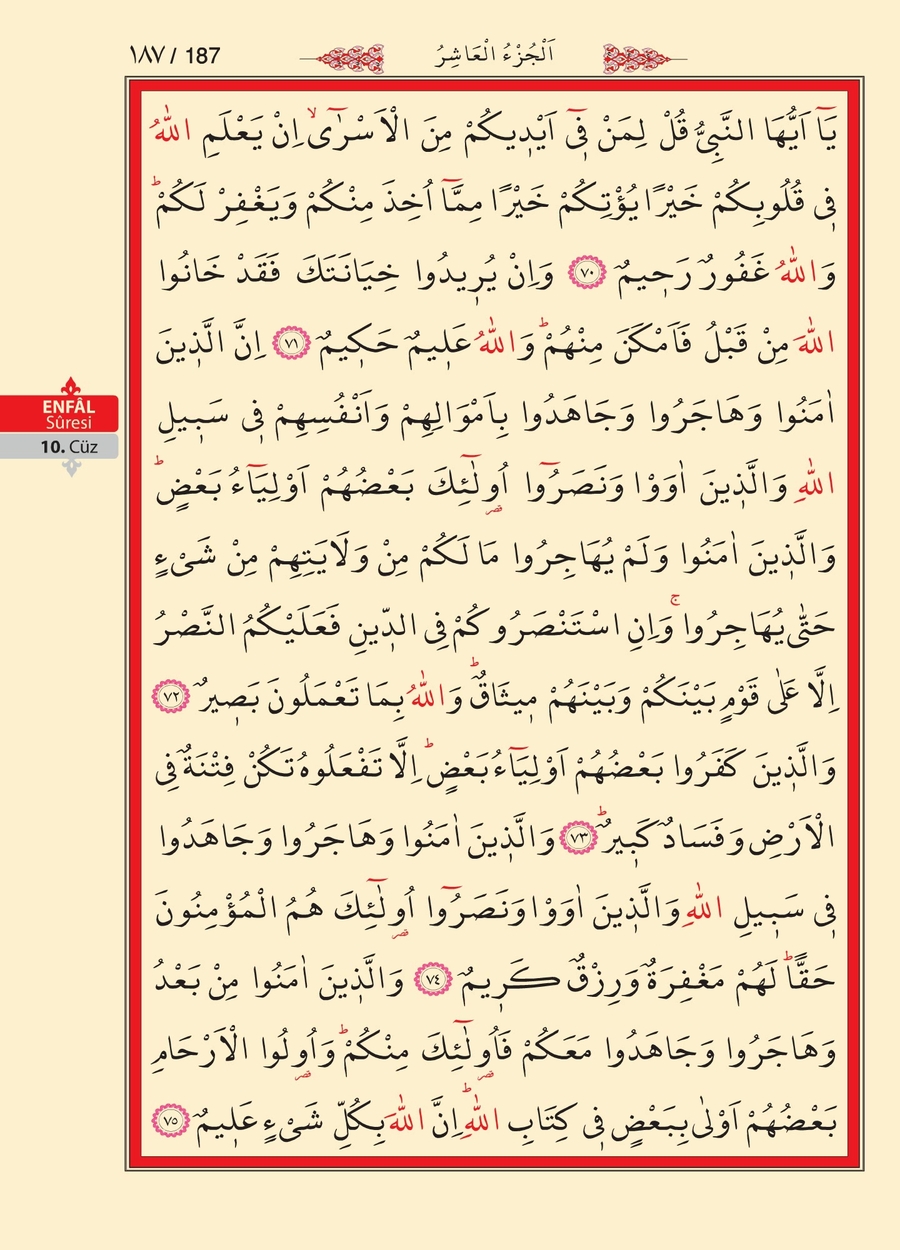 ١٨٧ / 187
اَلْجُزْءُ الْعَاشِرُ
يَٓا اَيُّهَا النَّبِيُّ قُلْ لِمَنْ ف۪ٓي اَيْد۪يكُمْ مِنَ الْاَسْرٰىۙٓ اِنْ يَعْلَمِ اللّٰهُ
ف۪ي قُلُوبِكُمْ خَيْرًا يُؤْتِكُمْ خَيْرًا مِمَّٓا اُخِذَ مِنْكُمْ وَيَغْفِرْ لَكُمْۜ
وَاللّٰهُ غَفُورٌ رَح۪يمٌ ﴿٧٠﴾ وَاِنْ يُر۪يدُوا خِيَانَتَكَ فَقَدْ خَانُوا
اللّٰهَ مِنْ قَبْلُ فَاَمْكَنَ مِنْهُمْۜ وَاللّٰهُ عَل۪يمٌ حَك۪يمٌ ﴿٧١﴾ اِنَّ الَّذ۪ينَ
اٰمَنُوا وَهَاجَرُوا وَجَاهَدُوا بِاَمْوَالِهِمْ وَاَنْفُسِهِمْ ف۪ي سَب۪يلِ
اللّٰهِ وَالَّذ۪ينَ اٰوَوْا وَنَصَرُٓوا اُو۬لٰٓئِكَ بَعْضُهُمْ اَوْلِيَٓاءُ بَعْضٍۜ
وَالَّذ۪ينَ اٰمَنُوا وَلَمْ يُهَاجِرُوا مَا لَكُمْ مِنْ وَلَايَتِهِمْ مِنْ شَيْءٍ
حَتّٰى يُهَاجِرُواۚ وَاِنِ اسْتَنْصَرُوكُمْ فِي الدّ۪ينِ فَعَلَيْكُمُ النَّصْرُ
اِلَّا عَلٰى قَوْمٍ بَيْنَكُمْ وَبَيْنَهُمْ م۪يثَاقٌۜ وَاللّٰهُ بِمَا تَعْمَلُونَ بَص۪يرٌ ﴿٧٢﴾
وَالَّذ۪ينَ كَفَرُوا بَعْضُهُمْ اَوْلِيَٓاءُ بَعْضٍۜ اِلَّا تَفْعَلُوهُ تَكُنْ فِتْنَةٌ فِي
الْاَرْضِ وَفَسَادٌ كَب۪يرٌۜ ﴿٧٣﴾ وَالَّذ۪ينَ اٰمَنُوا وَهَاجَرُوا وَجَاهَدُوا
ف۪ي سَب۪يلِ اللّٰهِ وَالَّذ۪ينَ اٰوَوْا وَنَصَرُٓوا اُو۬لٰٓئِكَ هُمُ الْمُؤْمِنُونَ
حَقًّاۜ لَهُمْ مَغْفِرَةٌ وَرِزْقٌ كَر۪يمٌ ﴿٧٤﴾ وَالَّذ۪ينَ اٰمَنُوا مِنْ بَعْدُ
وَهَاجَرُوا وَجَاهَدُوا مَعَكُمْ فَاُو۬لٰٓئِكَ مِنْكُمْۜ وَاُو۬لُوا الْاَرْحَامِ
بَعْضُهُمْ اَوْلٰى بِبَعْضٍ ف۪ي كِتَابِ اللّٰهِۜ اِنَّ اللّٰهَ بِكُلِّ شَيْءٍ عَل۪يمٌ ﴿٧٥﴾
ENFÂL
Sûresi
10. Cüz